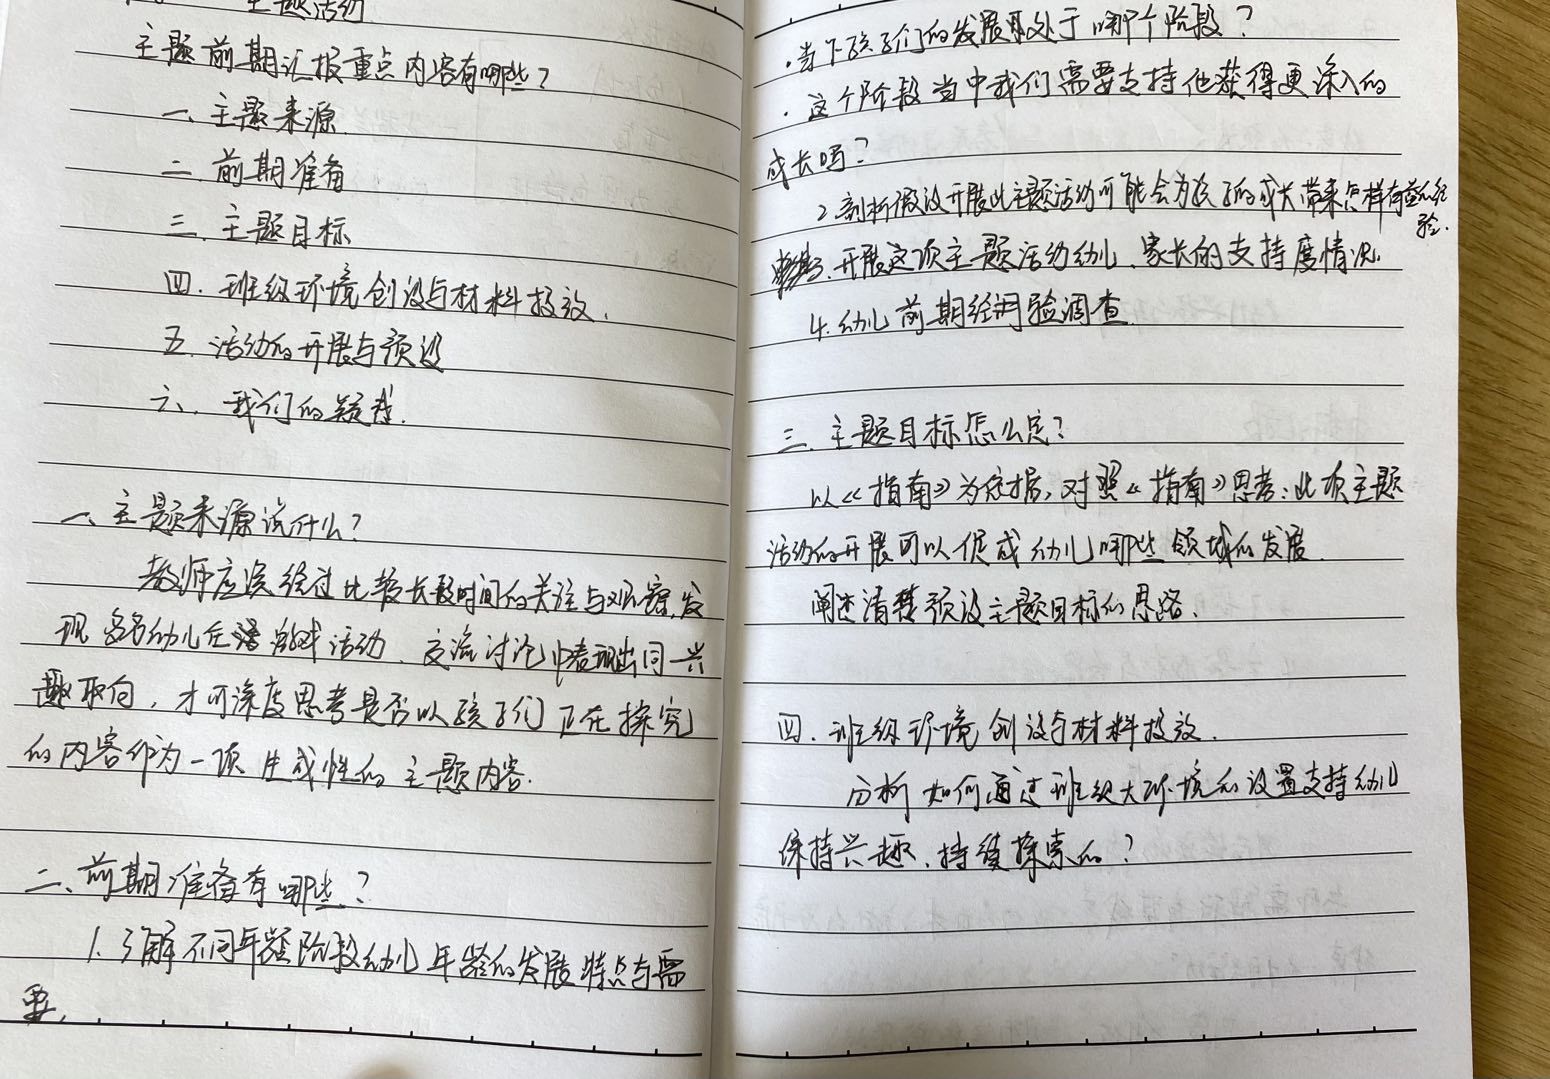 主题活动
主题前期汇报重点内容有哪些?
一、主题来源
二、前期准备
三、主题目标
四、班级环境创设与材料投放.
五、活动的开展与预设
六、我们的疑惑.
一、主题来源说什么?
教师应该经过比较长段时间的关注与观察,发
现多名幼儿在游戏活动、交流讨论中表现出同一兴
趣取向,才可深度思考是否以孩子们正在探究
的内容作为一项生成性的主题内容.
二、前期准备有哪些?
1.了解不同年龄阶段幼儿年龄的发展特点与需
要.
·当下孩子们的发展处于哪个阶段?
·这个阶段当中我们需要支持他获得更深入的
成长吗?
2.剖析假设开展此主题活动可能会为孩子的成长带来怎样有益的经
验.
开展这项主题活动幼儿、家长的支持度情况.
4.幼儿前期经验调查
三、主题目标怎么定?
以《指南》为依据,对照《指南》思考:此项主题
活动的开展可以促成幼儿哪些领域的发展.
阐述清楚预设主题目标的思路.
四、班级环境创设与材料投放.
分析如何通过班级大环境的设置支持幼儿
保持兴趣、持续探索的?